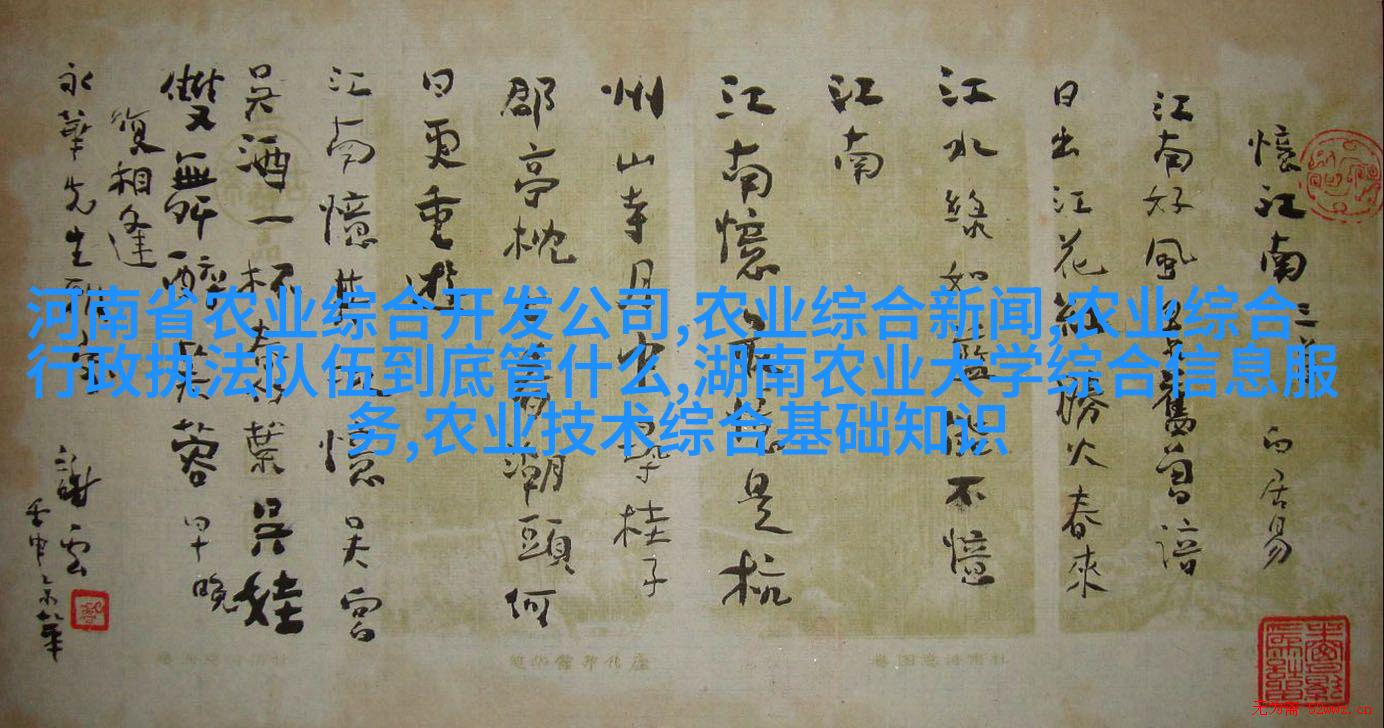 憶江南三首 白居易
江南好風景舊曾諳
日出江花紅勝火春來
江水綠如藍能不憶
江南
江南憶最憶是杭
州山寺月中尋桂子
郡亭枕上看潮頭何
日更重遊
江南憶其次憶吳宮
吳酒一杯春竹葉吳娃
雙舞醉芙蓉早晚
復相逢
永華先生
謝雲
壬申
河南省农业综合开发公司,农业综合新闻,农业综合
行政执法队伍到底管什么,湖南农业大学综合信息服
务,农业技术综合基础知识